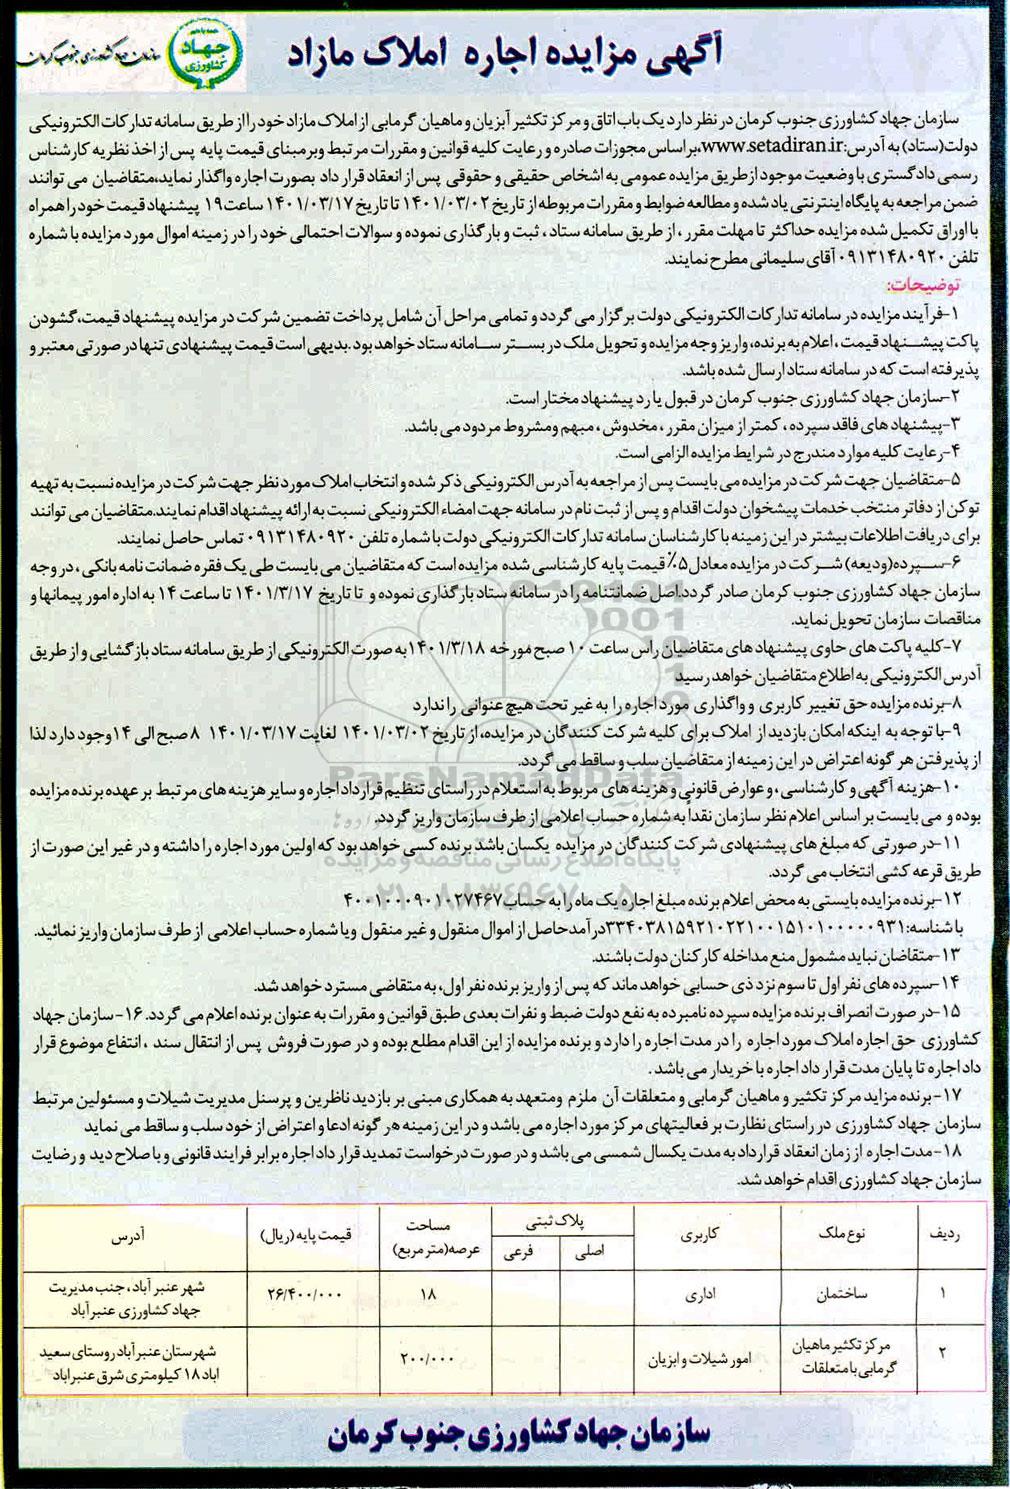 آگهی مزایده اجاره املاک مازاد
جهاد کشاورزی
سازمان جهاد کشاورزی جنوب کرمان
سازمان جهاد کشاورزی جنوب کرمان در نظر دارد یک باب اتاق و مرکز تکثیر آبزیان و ماهیان گرمابی از املاک مازاد خود را از طریق سامانه تدارکات الکترونیکی
دولت(ستاد) به آدرس:www.setadiran.ir،براساس مجوزات صادره و رعایت کلیه قوانین و مقررات مرتبط وبرمبنای قیمت پایه پس از اخذ نظریه کارشناس
رسمی دادگستری با وضعیت موجود ازطریق مزایده عمومی به اشخاص حقیقی و حقوقی پس از انعقاد قرار داد بصورت اجاره واگذار نماید،متقاضیان می توانند
ضمن مراجعه به پایگاه اینترنتی یاد شده و مطالعه ضوابط و مقررات مربوطه از تاریخ ۱۴۰۱/۰۳/۰۲ تا تاریخ ۱۴۰۱/۰۳/۱۷ ساعت۱۹ پیشنهاد قیمت خود را همراه
با اوراق تکمیل شده مزایده حداکثر تا مهلت مقرر ، از طریق سامانه ستاد ، ثبت و بارگذاری نموده و سوالات احتمالی خود را در زمینه اموال مورد مزایده با شماره
تلفن ۰۹۱۳۱۴۸۰۹۲۰ آقای سلیمانی مطرح نمایند.
توضیحات:
۱-فرآیند مزایده در سامانه تدارکات الکترونیکی دولت برگزار می گردد و تمامی مراحل آن شامل پرداخت تضمین شرکت در مزایده پیشنهاد قیمت،گشودن
پاکت پیشنهاد قیمت ، اعلام به برنده، واریز وجه مزایده و تحویل ملک در بستر سامانه ستاد خواهد بود .بدیهی است قیمت پیشنهادی تنها در صورتی معتبر و
پذیرفته است که در سامانه ستاد ارسال شده باشد.
۲-سازمان جهاد کشاورزی جنوب کرمان در قبول یا رد پیشنهاد مختار است.
۳-پیشنهاد های فاقد سپرده ، کمتر از میزان مقرر ، مخدوش ، مبهم ومشروط مردود می باشد.
۴-رعایت کلیه موارد مندرج در شرایط مزایده الزامی است.
۵-متقاضیان جهت شرکت در مزایده می بایست پس از مراجعه به آدرس الکترونیکی ذکر شده و انتخاب املاک مورد نظر جهت شرکت در مزایده نسبت به تهیه
توکن از دفاتر منتخب خدمات پیشخوان دولت اقدام و پس از ثبت نام در سامانه جهت امضاء الکترونیکی نسبت به ارائه پیشنهاد اقدام نمایند.متقاضیان می توانند
برای دریافت اطلاعات بیشتر در این زمینه با کارشناسان سامانه تدارکات الکترونیکی دولت با شماره تلفن ۰۹۱۳۱۴۸۰۹۲۰ تماس حاصل نمایند.
۶-سپرده(ودیعه) شرکت در مزایده معادل۵٪قیمت پایه کارشناسی شده مزایده است که متقاضیان می بایست طی یک فقره ضمانت نامه بانکی ، در وجه
سازمان جهاد کشاورزی جنوب کرمان صادر گردد.اصل ضمانتنامه را در سامانه ستاد بارگذاری نموده و تا تاریخ ۱۴۰۱/۳/۱۷ تا ساعت ۱۴ به اداره امور پیمانها و
مناقصات سازمان تحویل نماید.
۷-کلیه پاکت های حاوی پیشنهاد های متقاضیان راس ساعت ۱۰ صبح مورخه ۱۴۰۱/۳/۱۸به صورت الکترونیکی از طریق سامانه ستاد بازگشایی و از طریق
آدرس الکترونیکی به اطلاع متقاضیان خواهد رسید
۸-برنده مزایده حق تغییر کاربری و واگذاری مورد اجاره را به غیر تحت هیچ عنوانی را ندارد
۹-با توجه به اینکه امکان بازدید از املاک برای کلیه شرکت کنندگان در مزایده، از تاریخ ۱۴۰۱/۰۳/۰۲ لغایت ۱۴۰۱/۰۳/۱۷ ۸صبح الی ۱۴وجود دارد لذا
از پذیرفتن هر گونه اعتراض در این زمینه از متقاضیان سلب و ساقط می گردد.
ParsNamadData
۱۰-هزینه آگهی و کارشناسی ، و عوارض قانونی و هزینه های مربوط به استعلام در راستای تنظیم قرارداد اجاره و سایر هزینه های مرتبط بر عهده برنده مزایده
بوده و می بایست بر اساس اعلام نظر سازمان نقداً به شماره حساب اعلامی از طرف سازمان واریز گردد.
۱۱-در صورتی که مبلغ های پیشنهادی شرکت کنندگان در مزایده یکسان باشد برنده کسی خواهد بود که اولین مورد اجاره را داشته و در غیر این صورت از
طریق قرعه کشی انتخاب می گردد.
پایگاه اطلاع رسانی مناقصه و مزایده
۱۲-برنده مزایده بایستی به محض اعلام برنده مبلغ اجاره یک ماه را به حساب۴۰۰۱۰۰۰۹۰۱۰۲۷۴۶۷
۰۲۱-۸۸۳۴۹۶۷۰-۵
با شناسه:۳۳۴۰۳۸۱۵۹۲۱۰۲۲۱۰۰۱۵۱۰۱۰۰۰۰۰۹۳۱درآمدحاصل از اموال منقول و غیر منقول ویا شماره حساب اعلامی از طرف سازمان واریز نمائید.
۱۳-متقاضان نباید مشمول منع مداخله کارکنان دولت باشند.
۱۴-سپرده های نفر اول تا سوم نزد ذی حسابی خواهد ماند که پس از واریز برنده نفر اول، به متقاضی مسترد خواهد شد.
۱۵-در صورت انصراف برنده مزایده سپرده نامبرده به نفع دولت ضبط و نفرات بعدی طبق قوانین و مقررات به عنوان برنده اعلام می گردد. ۱۶-سازمان جهاد
کشاورزی حق اجاره املاک مورد اجاره را در مدت اجاره را دارد و برنده مزایده از این اقدام مطلع بوده و در صورت فروش پس از انتقال سند ، انتفاع موضوع قرار
داد اجاره تا پایان مدت قرار داد اجاره با خریدار می باشد .
۱۷-برنده مزاید مرکز تکثیر و ماهیان گرمابی و متعلقات آن ملزم ومتعهد به همکاری مبنی بر بازدید ناظرین و پرسنل مدیریت شیلات و مسئولین مرتبط
سازمان جهاد کشاورزی در راستای نظارت بر فعالیتهای مرکز مورد اجاره می باشد و در این زمینه هر گونه ادعا و اعتراض از خود سلب و ساقط می نماید
۱۸-مدت اجاره از زمان انعقاد قرارداد به مدت یکسال شمسی می باشد و در صورت درخواست تمدید قرار داد اجاره برابر فرایند قانونی و با صلاح دید و رضایت
سازمان جهاد کشاورزی اقدام خواهد شد.
ردیف نوع ملک کاربری پلاک ثبتی مساحت عرصه(متر مربع) قیمت پایه (ریال) آدرس
اصلی فرعی
۱ ساختمان اداری ۱۸ ۲۶/۴۰۰/۰۰۰ شهر عنبر آباد ، جنب مدیریت
جهاد کشاورزی عنبرآباد
۲ مرکز تکثیر ماهیان گرمابی با متعلقات امور شیلات و ابزیان ۲۰۰/۰۰۰ شهرستان عنبرآباد روستای سعید
اباد ۱۸ کیلومتری شرق عنبراباد
سازمان جهاد کشاورزی جنوب کرمان